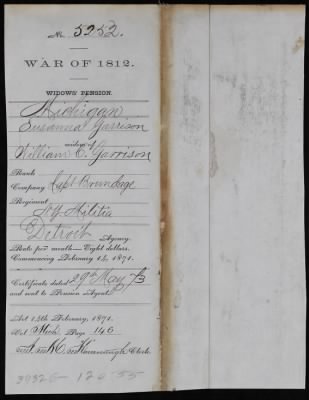 No. 5252.
WAR OF 1812.
WIDOWS' PENSION.
Michigan
Susanna Garrison
widow of
William C. Garrison
Rank
Company Capt Brundage
Regiment
Militia
Detroit Agency.
Rate per month—Eight dollars.
Commencing February 14, 1871.
Certificate dated 29th May 73
and sent to Pension Agent.
Act 14th February, 1871.
Vol. Mich. Page 146
Clerk.